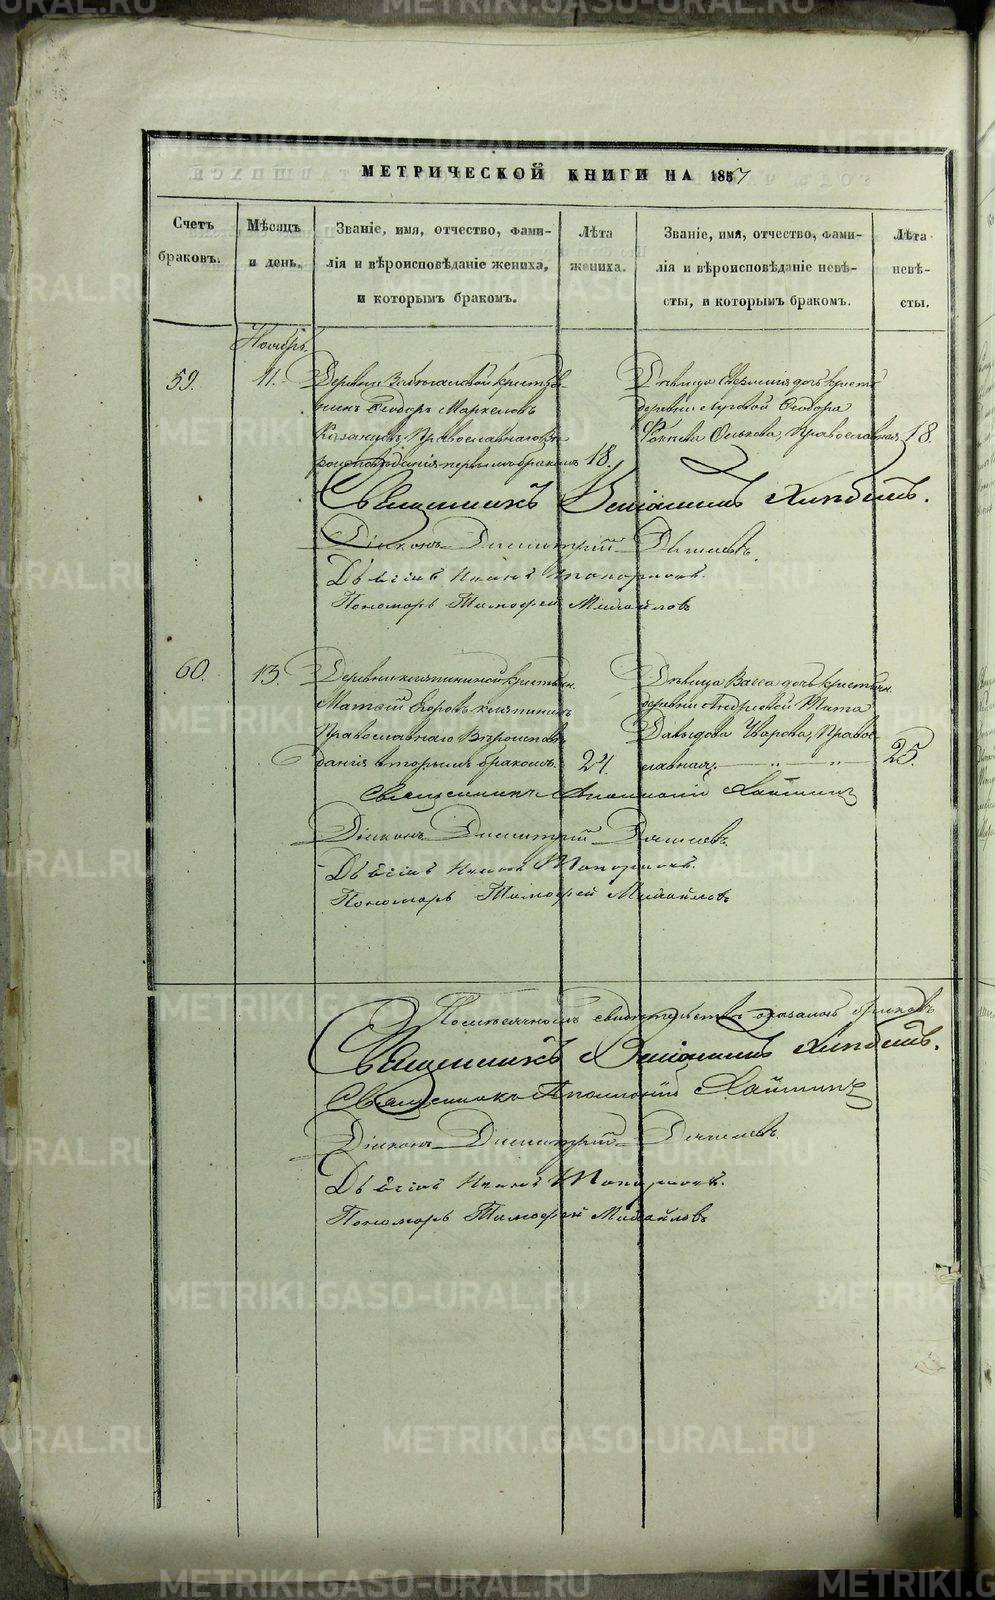 МЕТРИЧЕСКОЙ КНИГИ НА 1857
Счетъ браковъ.
Мѣсяцъ и день.
Званіе, имя, отчество, фами-
лія и вѣроисповѣданіе жениха,
и которымъ бракомъ.
Лѣта жениха.
Званіе, имя, отчество, фами-
лія и вѣроисповѣданіе невѣ-
сты, и которымъ бракомъ.
Лѣта невѣ-
сты.
Ноябрь.
59.
11.
Деревни крестья-
нинъ Ѳеодоръ Маркеловъ
Казанцовъ, Православнаго Вѣ-
роисповѣданія первымъ бракомъ
18.
Дѣвица дочь крест.
деревни Луговой Ѳеодора
Православная
18.
Священникъ Веніаминъ
Діаконъ Димитрій
Дьячокъ Иванъ Топорковъ.
Пономарь Тимофей Михайловъ
60.
13.
Деревни Клепининой крестьян.
Матѳій Егоровъ Клепининъ
Православнаго Вѣроисповѣ-
данія вторымъ бракомъ.
24.
Дѣвица Васса дочь крестьян.
деревни Андреевой Тита
Давыдова Уварова, Право-
славная,
25.
Священникъ Аполлоній
Діаконъ Димитрій
Дьячокъ Иванъ Топорковъ.
Пономарь Тимофей Михайловъ
свидѣтельствѣ оказалось браковъ
Священникъ Веніаминъ
Священникъ Аполлоній
Діаконъ Димитрій
Дьячокъ Иванъ Топорковъ.
Пономарь Тимофей Михайловъ
METRIKI.GASO-URAL.RU